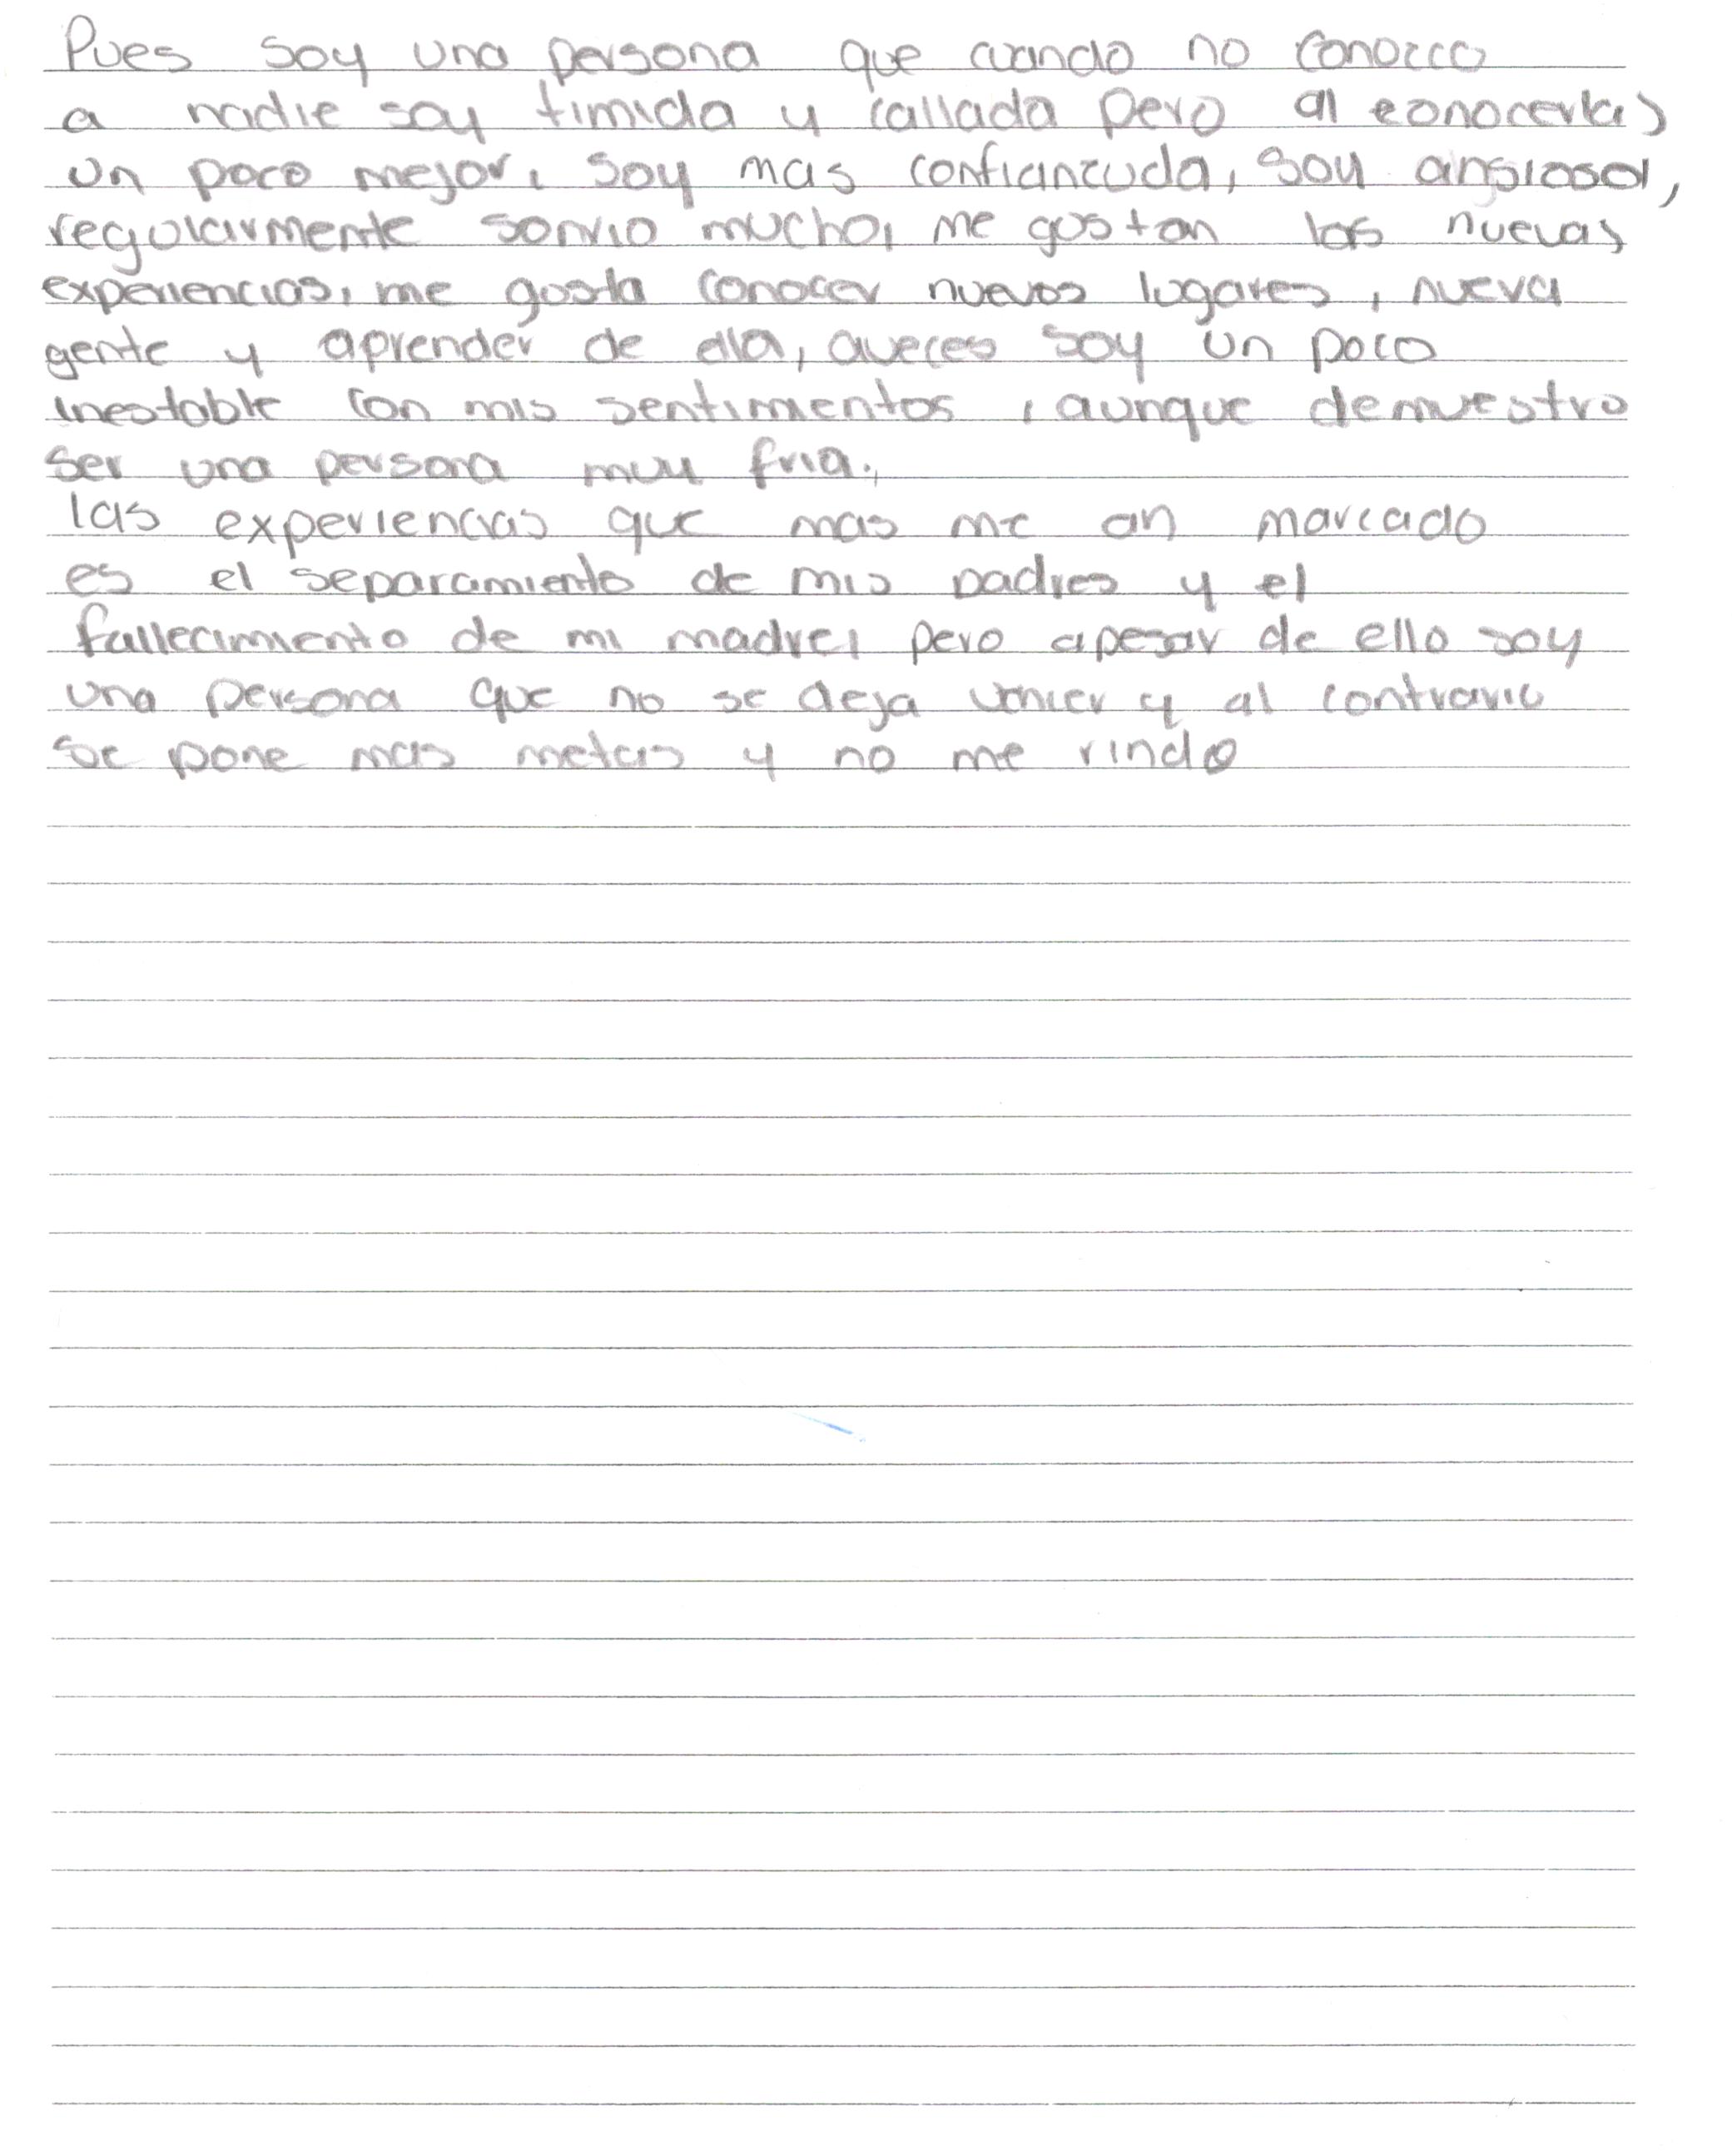 Pues soy una persona que cuando no conozco
a nadie soy timida y callada pero al conocerlas
un poco mejor, soy mas confianzuda, soy ansiosa,
regularmente sonrio mucho, me gustan las nuevas
experiencias, me gusta conocer nuevos lugares, nueva
gente y aprender de ella, aveces soy un poco
inestable con mis sentimientos, aunque demuestro
ser una persona muy fria.,
las experiencias que mas me an marcado
es el separamiento de mis padres y el
fallecimiento de mi madre, pero apesar de ello soy
una persona que no se deja vencer y al contrario
se pone mas metas y no me rindo